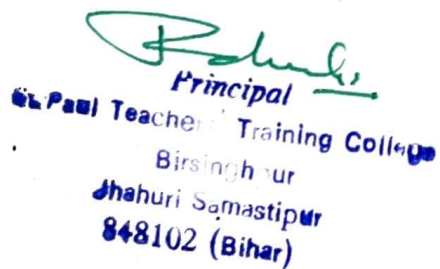 Principal
St. Paul Teachers Training College
Birsinghpur
Jhahuri Samastipur
848102 (Bihar)